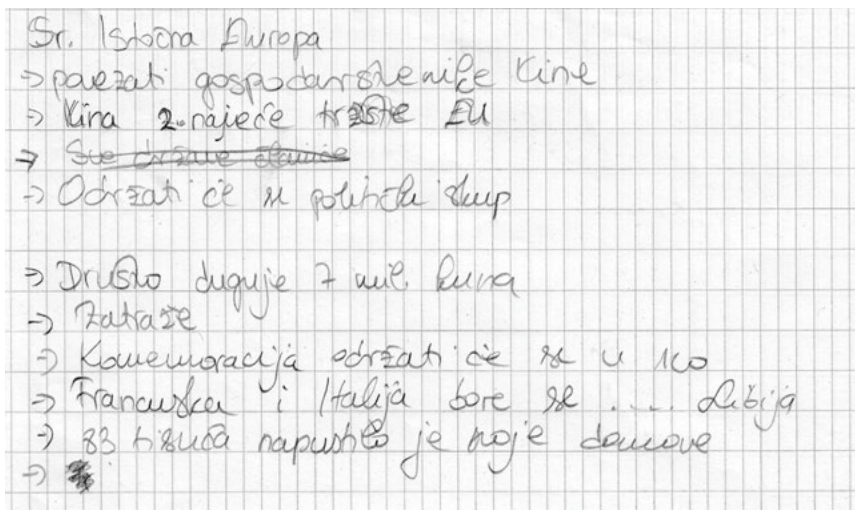 Sr. Istočna Europa
→ povezati gospodarstvenike Kine
→ Kina 2. najveće tržište EU
→ Sve države članice
→ Održati će se politički skup
→ Društvo duguje 7 mil. kuna
→ Zatraže
→ Komemoracija održati će se u 11:00
→ Francuska i Italija bore se .... Libija
→ 83 tisuća napustilo je svoje domove
→